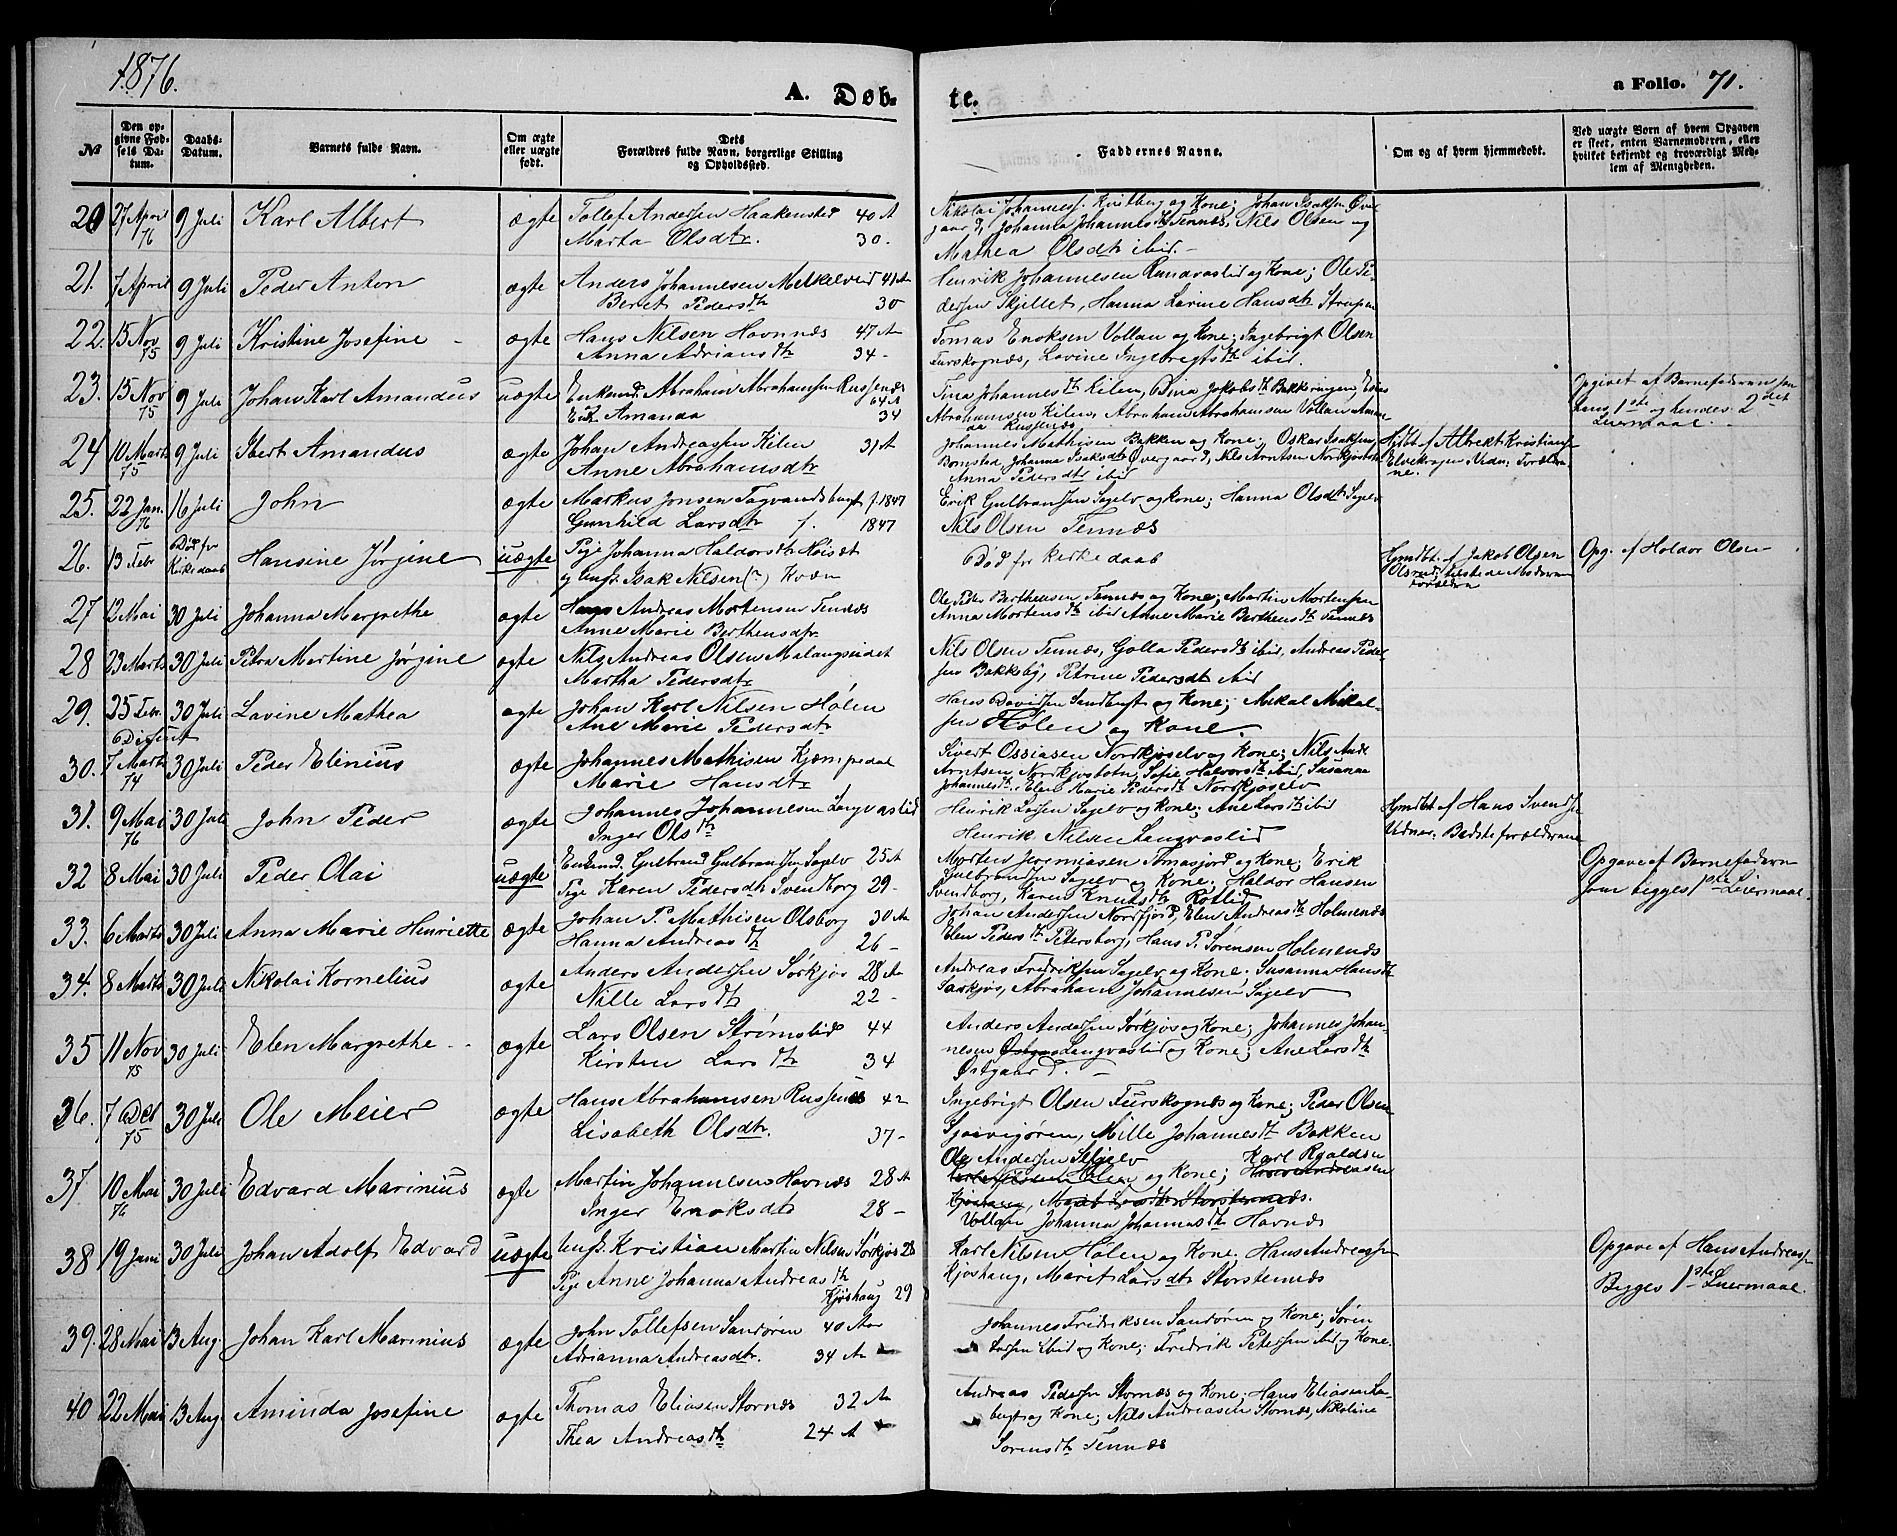 1876.
A. Døb-
te.
a Folio. 71.
No
Den op-
givne Fød-
sels Da-
tum.
Daabs-
Datum.
Barnets fulde Navn.
Om ægte
eller uægte
født.
Dets
Forældres fulde Navn, borgerlige Stilling
og Opholdssted.
Faddernes Navne.
Om og af hvem hjemmedøbt.
Ved uægte Børn af hvem Opgaven
er skeet, enten Barnemoderen, eller
hvilket bekjendt og troværdigt Med-
lem af Menigheden.
20 27 April 76 9 Juli Karl Albert ægte Tollef Andersen Haakenstad 40 A
Marta Olsdtr. 30.
Nikolai Johannes. Kvitberg og Kone; Johan Isaksen Over
gaard, Johanna Johannesdtr Tennes, Nils Olsen og
Mathea Olsdtr ibid.
21. 7 April 9 Juli Peder Anton ægte Anders Johannesen Melkelven 41 A
Beret Pedersdtr 30
Henrik Johannesen Rundvaslid og Kone; Ole Pe-
dersen Skjellet, Hanna Larine Hansdtr Strupen
22. 15 Nov 75 9 Juli Kristine Josefine ægte Hans Nilsen Havnnæs 47 A
Anna Adriansdtr 34 -
Tomas Enoksen Vollan og Kone; Ingebrigt Olsen
Furskognæs, Lovine Ingebrigtsdtr ibid.
23. 15 Nov 75 9 Juli Johan Karl Amandus uægte Enkemd. Abraham Abrahamsen Russenæs 64 A
Enk. Amanda 34
Tina Johannesdtr Kilen, Dina Jakobsdtr Bakkeringen,
Abrahamsen Kilen, Abraham Abrahamsen Vollan
Russenæs
Opgivet af Barnefaderen
hans 1ste og hendes 2det
Leiermaal.
24 10 Marts 75 9 Juli Ibert Amandus ægte Johan Andreassen Kilen 31 A
Anne Abrahamsdtr
Johannes Mathisen Bakken og Kone; Oskar Isaksen,
Bomstad, Johanna Isaksdtr Overgaard, Nils Arntsen Nordkjosbotn
Anna Pedersdtr ibid
Hjdbt af Albrekt Kristians
Elvekrogen; Vidn: Foreldre
ne.
25. 22 Jan. 76 16 Juli John ægte Markus Jonsen Tagvandsbugt f. 1847
Gunhild Larsdtr f. 1847
Erik Gulbrandsen Sagelv og Kone; Hanna Olsdtr Sagelv
Nils Olsen Tennæs
26. 13 Febr Død før Kirkedaab Hansine Jørgine uægte Pige Johanna Haldorsdtr Moiset
og Ungk. Isak Nilsen (?) Kvæn
Død før Kirkedaab
Hjmdbt. af Jakob Olsen
Olsrud; tilstede Moderen
Forældre
Opg. af Haldor Olsen
27 12 Mai 30 Juli Johanna Margrethe ægte Hans Andreas Mortensen Tennæs
Anne Marie Berthensdtr.
Ole Peder Berthensen Tennæs og Kone; Martin Mortensen
Anna Mortensdtr ibid Anne Marie Berthensdtr Tennæs
28 23 Marts 30 Juli Petra Martine Jørgine ægte Nils Andreas Olsen Malangseidet
Martha Pedersdtr
Nils Olsen Tennæs, Golla Pedersdtr ibid, Andreas Peder-
sen Bakkeby, Petrine Pedersdtr ibid
29. 25 Febr. 30 Juli Lavine Mathea ægte Johan Karl Nilsen Holen
Ane Marie Pedersdtr
Hans Davidsen Sandbugt og Kone; Mikal Mikal-
sen Holen og Kone.
30. 7 Marts 74 30 Juli Peder Elenius ægte Johannes Mathisen Kjempedal
Marie Hansdtr
Sivert Ossiasen Nordkjoselv og Kone; Nils
Arntsen Nordkjosbotn, Sofie Halvorsdtr ibid, Susanna
Johannesdtr, Elen Marie Pedersdtr Nordkjoselv
31. 9 Mai 76 30 Juli John Peder ægte Johannes Johannesen Langvaslid
Inger Olsdtr
Henrik Larsen Sagelv og Kone; Ane Larsdtr ibid
Henrik Nilsen Langvaslid
Hjmdbt af Hans Svends
Vidner: Bedsteforældrene
32 8 Mai 30 Juli Peder Olai uægte Enkemd. Gulbrand Gulbrandsen Sagelv 25 A
Pige Karen Pedersdtr Svendborg 29 -
Morten Jeremiasen Tomasjord og Kone; Erik
Gulbrandsen Sagelv og Kone; Haldor Hansen
Svendborg, Karen Knutsdtr Rotlid
Opgave af Barnefaderen
som begges 1ste Leiermaal.
33. 6 Marts 30 Juli Anna Marie Henriette ægte Johan P. Mathisen Olsborg 30 A
Hanna Andreasdtr 26 -
Johan Andersen Nordfjord, Elen Andreasdtr Holmenæs
Elen Pedersdtr Petersborg, Hans P. Sørensen Holmenæs
34. 8 Marts 30 Juli Nikolai Kornelius ægte Anders Andersen Sørkjos 28 A
Nille Larsdtr 22 -
Andreas Fredriksen Sagelv og Kone; Susanna Hansdtr
Sørkjos, Abraham Johannesen Sagelv
35 11 Nov 75 30 Juli Elen Margrethe ægte Lars Olsen Strømslid 44
Kirsten Larsdtr 34
Anders Andersen Sørkjos og Kone; Johannes Johan-
nesen Langvaslid og Kone; Ane Larsdtr
Østgaard.
36. 7 Deb 75 30 Juli Ole Meier ægte Hans Abrahamsen Russenæs 42
Lisabeth Olsdtr. 37 -
Ingebrigt Olsen Furskognæs og Kone; Peder Olsen
Sjøvigøren, Mille Johannesdtr Bakken
37 10 Mai 76 30 Juli Edvard Marinius ægte Martin Johannesen Havnæs 28 A
Inger Enoksdtr 28 -
Ole Andersen Skjelv og Kone; Karl Roaldsen
Vollan Johanna Johannesdtr Havnæs
38 19 Juni 30 Juli Johan Adolf Edvard uægte Ungk. Kristian Martin Nilsen Sørkjos 28
Pige Anne Johanna Andreasdtr
Kjoshaug 29
Karl Nilsen Holen og Kone. Hans Andreassen
Kjoshaug, Marit Larsdtr Storstennæs
Opgave af Hans Andreass
Begges 1ste Leiermaal.
39. 28 Mai 13 Aug. Johan Karl Marinius ægte John Tollefsen Sandøren 40 A
Adrianna Andreasdtr. 34 A
Johannes Fredriksen Sandøren og Kone; Søren
Larsen ibid og Kone; Fredrik Petersen ibid og Kone.
40 22 Mai 13 Aug Aminda Josefine ægte Thomas Eliasen Stornæs 32 A
Thea Andreasdtr 24 A
Andreas Pedersen Stornæs og Kone; Hans Eliasen
bugt og Kone; Nils Andreasen Stornæs, Nikoline
Sørensdtr Tennæs